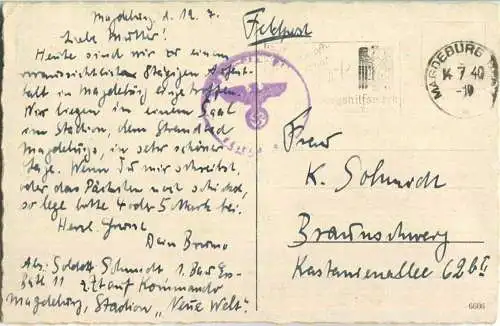 Magdeburg d. 12. 7.
Liebe Mutter!
Heute sind wir zu einem
voraussichtlich 8tägigen Aufent-
halt in Magdeburg eingetroffen.
Wir liegen in einem Saal
im Stadion, dem Strandbad
Magdeburgs, in sehr schöner
Lage. Wenn Du mir schreibst,
oder das Päckchen noch schickst,
so lege bitte 4 oder 5 Mark bei.
Herzl. Grüsse
Dein Bruno
Abs: Soldat Schmidt 1. Bau Ers-
Batl 11 zZt auf Kommando
Magdeburg, Stadion „Neue Welt".
Feldpost
MAGDEBURG
14 7 40
-19
Frau
K. Schmidt
Braunschweig
Kastanienallee 62b II
6606